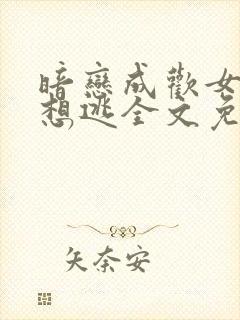 暗戀成歡女
想逃全文免
矢奈安